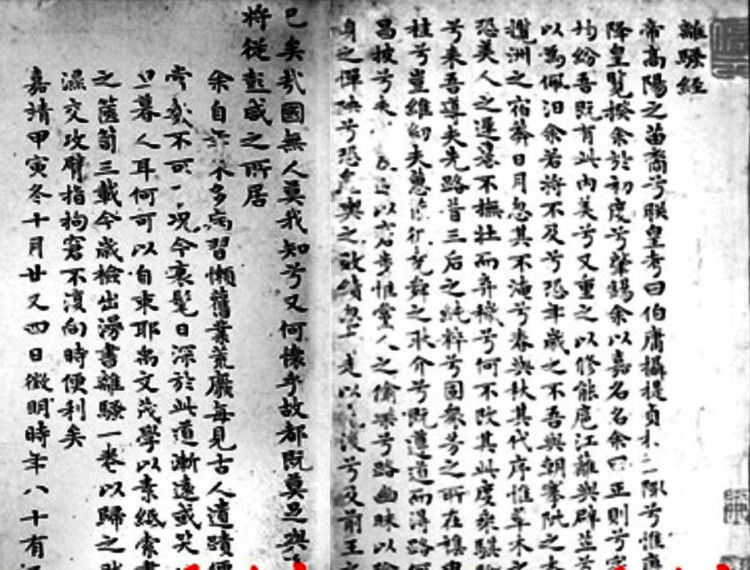 離騷經
帝高陽之苗裔兮朕皇考曰伯庸攝提貞陬兮惟庚
降皇覽揆余於初度兮肇錫余以嘉名名余曰正則兮字
均紛吾既有此內美兮又重之以修能扈江蘺與辟芷兮
以為佩汨余若將不及兮恐年歲之不吾與朝搴阰之木
洲之宿莽日月忽其不淹兮春與秋其代序惟草木之
恐美人之遲暮不撫壯而棄穢兮何不改其此度乘騏驥
兮來吾導夫先路昔三后之純粹兮固衆芳之所在雜申
桂兮豈維紉夫蕙堯舜之耿介兮既遵道而得路何
昌披兮夫以窘步惟黨人之偷樂兮路幽昧以險
身之憚殃兮恐輿之敗績忽走以後兮及前王之
已矣哉國無人莫我知兮又何懷乎故都既莫足與
將從彭咸之所居
余自來多病習懶舊業荒廢每見古人遺蹟便
不可況今衰髦日深於此道漸遠或笑
旦暮人耳何可以自束耶禹文茂學以素紙索書
之篋笥三載今歲檢出漫書離騷一卷以歸之
濕交攻臂指拘窘不復向時便利矣
嘉靖甲寅冬十月廿又四日徵明時年八十有